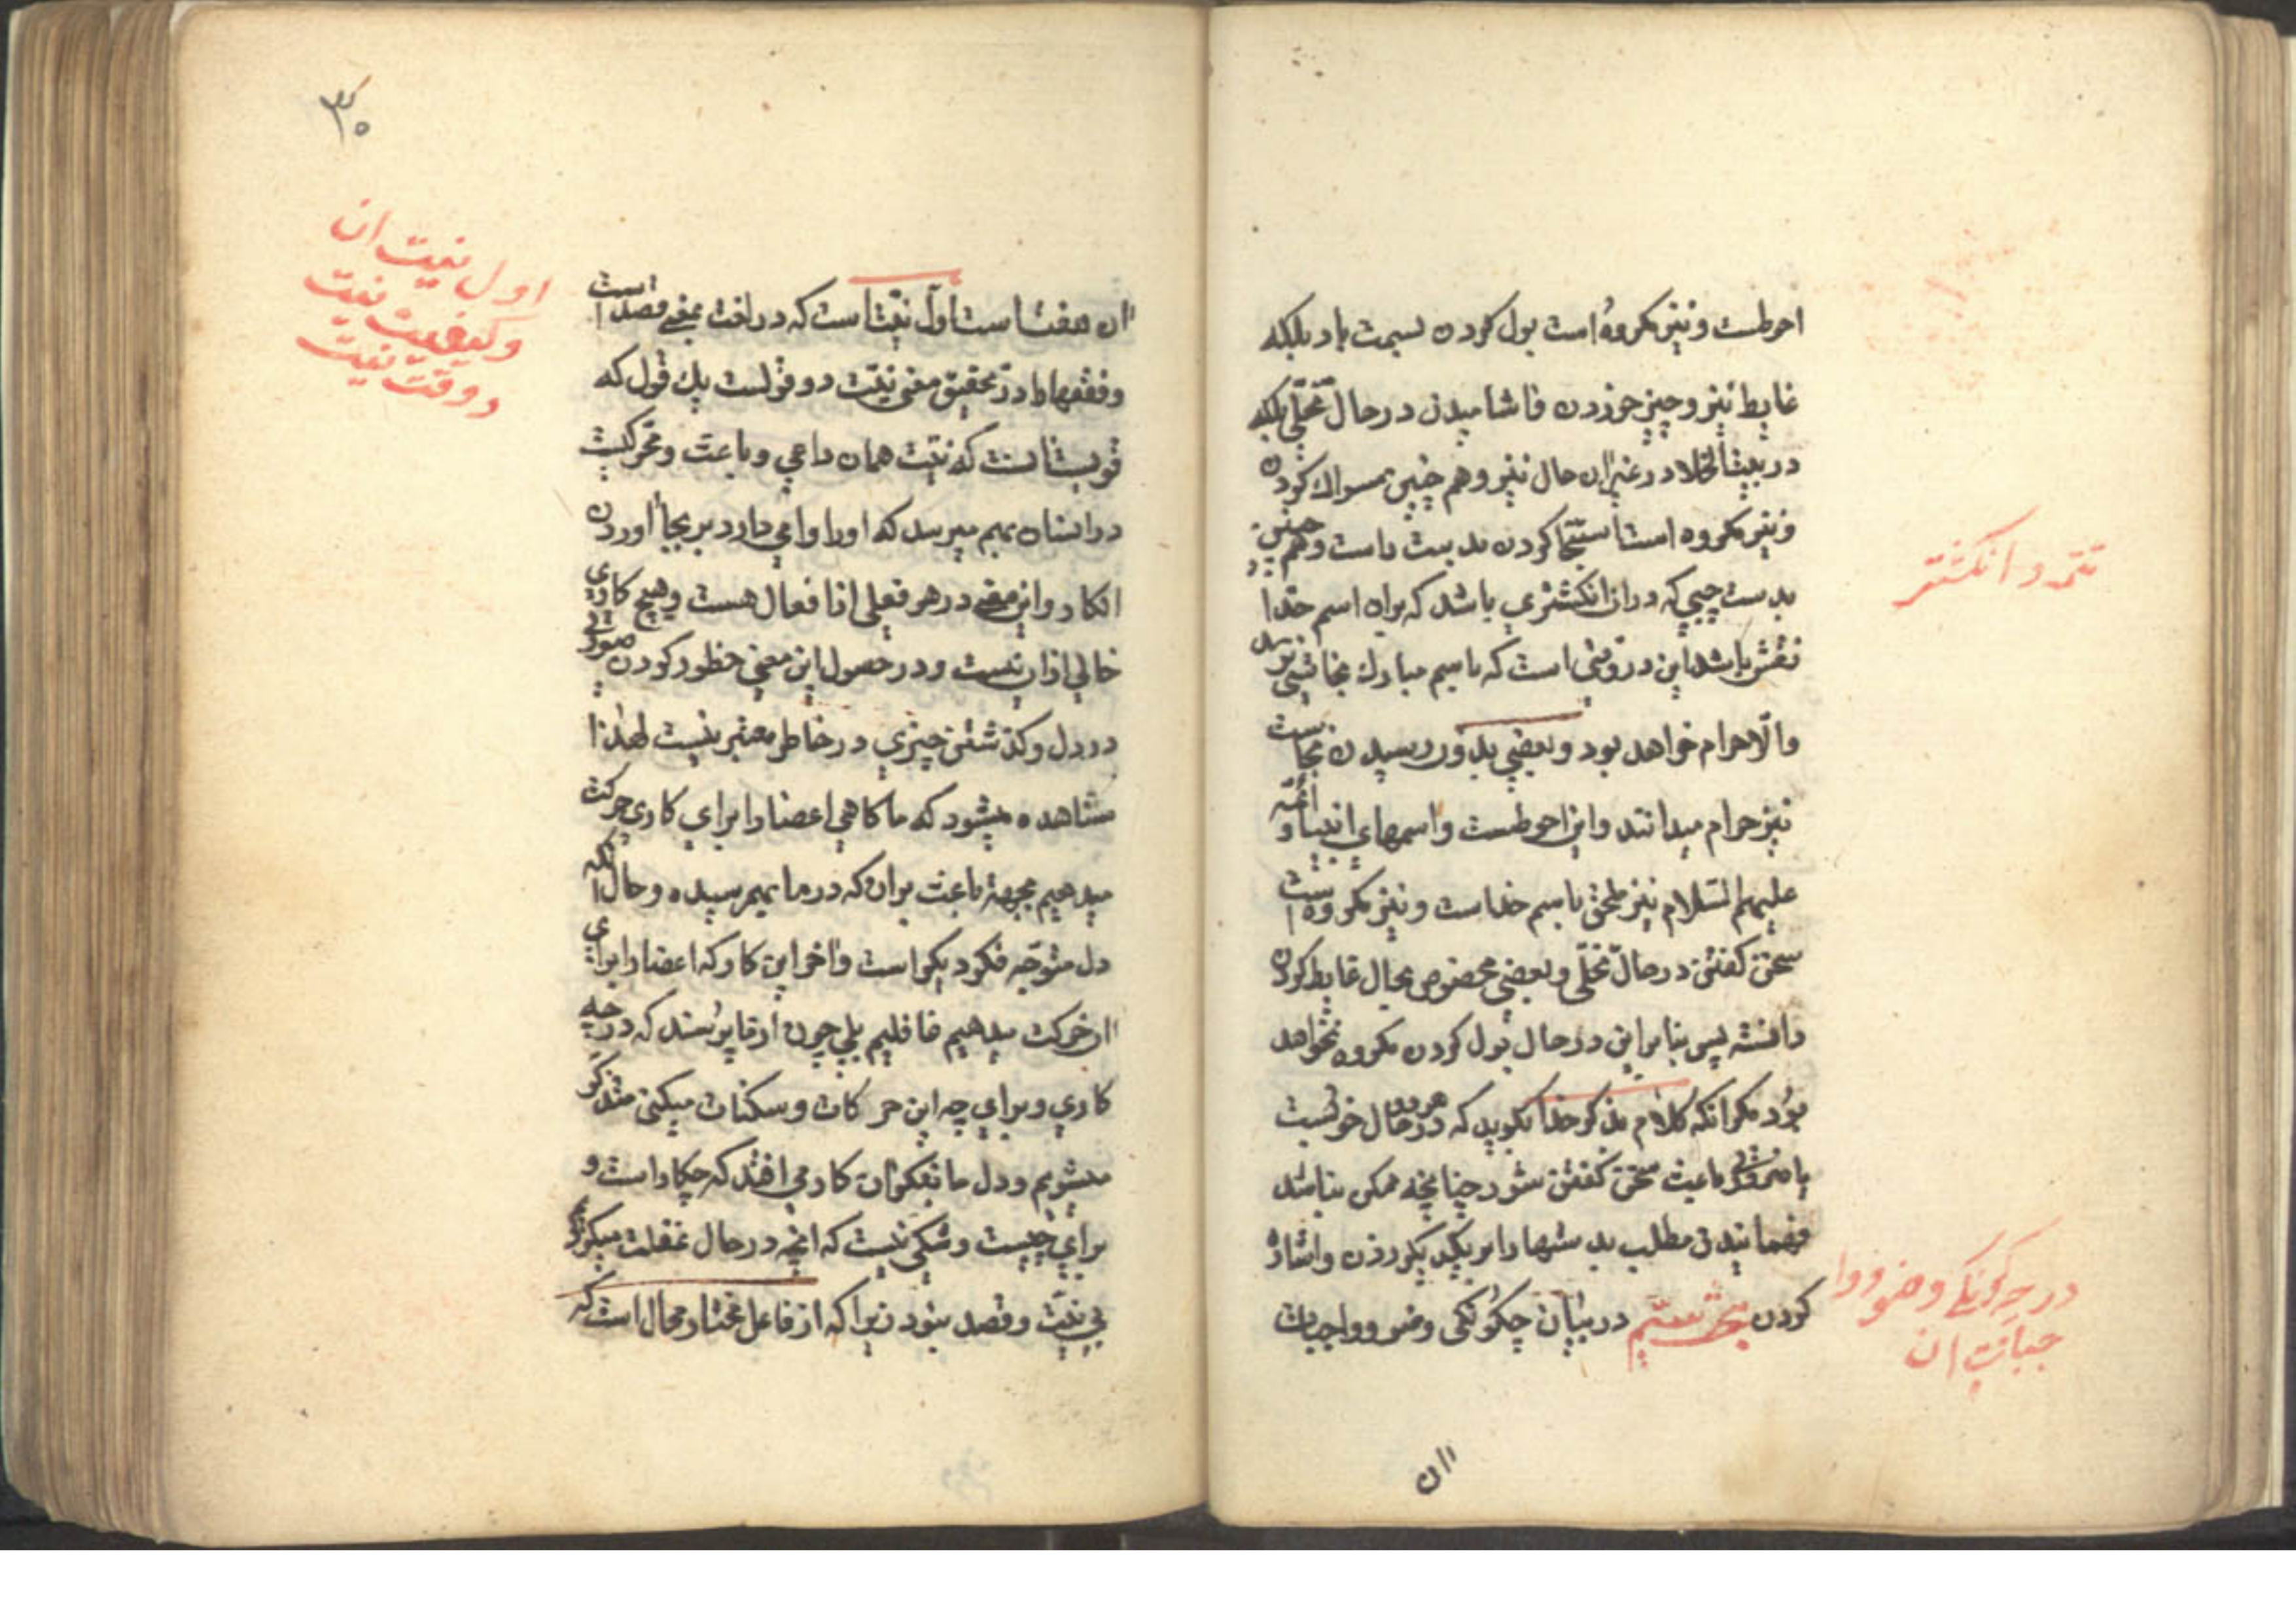 احوطست و نیز مکروه است بول کردن بسمت باد بلکه
غایط نیز و چیز خوردن و اشامیدن در حال تخلّی بلکه
در بیت الخلا در غیر ان حال نیز و هم چنین مسواک کردن
و نیز مکروه است استنجا کردن بدست راست و هم چنین
بدست چپی که در ان انکشتری باشد که بران اسم خدا
نقش باشد این در وقتی است که باسم مبارک نجاست نرسد
والّا حرام خواهد بود و بعضی بدون رسیدن نجاست
نیز حرام میدانند و این احوطست و اسمهای انبیا و ائمّه
علیهم السّلام نیز ملحق باسم خداست و نیز مکروه است
سخن کفتن در حال تخلّی و بعضی مخصوص بحال غایط کردن
دانسته پس بنابراین در حال بول کردن مکروه نخواهد
بود مکر انکه کلام بذکر خدا بکوید که در هر دو حال خوبست
یا ضرورتی باعث سخن کفتن شود چنانچه ممکن نباشد
فهمانیدن مطلب بدستها را بر یکدیکر زدن و اشاره
کردن مبحث بیستم در بیان چکونکی وضو و واجبات
تتمه در انکشتر
در چکونکی وضو و وا
جبات ان
ان
۳۰
ان هفت است اول نیّت است که در لغت بمعنی قصد است
و فقها را در تحقیق معنی نیّت دو قولست یک قول که
قویست انست که نیّت همان داعی و باعث و محرکیست
در انسان بهم میرسد که او را وامی دارد بر بجا اوردن
انکار و این معنی در هر فعلی از افعال هست و هیچ کاری
خالی از ان نیست و در حصول این معنی خطور کردن صورتی
در دل و کذشتن چیزی در خاطر معتبر نیست لهذا
مشاهده میشود که ما کاهی اعضا را برای کاری حرکت
میدهیم بجهة باعث بران که در ما بهم رسیده و حال انکه
دل متوجّه فکر دیکر است و از این کار که اعضا را برای
ان حرکت میدهیم غافلیم بلی چون از ما پرسند که در چه
کاری و برای چه این حرکات و سکنات میکنی متذکّر
میشویم و دل ما بفکر ان کار می افتد که چکار است و
برای چیست و شکی نیست که انچه در حال غفلت میکردیم
بی نیّت و قصد نبود زیرا که از فاعل مختار محال است که
اول نیت ان
و کیفیت نیت
و وقت نیت